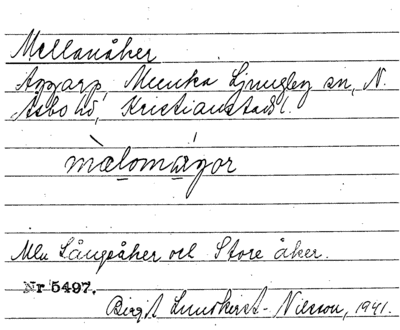 Mellanåker
Apparp, Munka Ljungby sn, N.
Åsbo hd, Kristianstads l.
mælomægor
Mln Långeåker och Store åker.
Nr 5497.
Birgit Lundkvist-Nilsson, 1941.